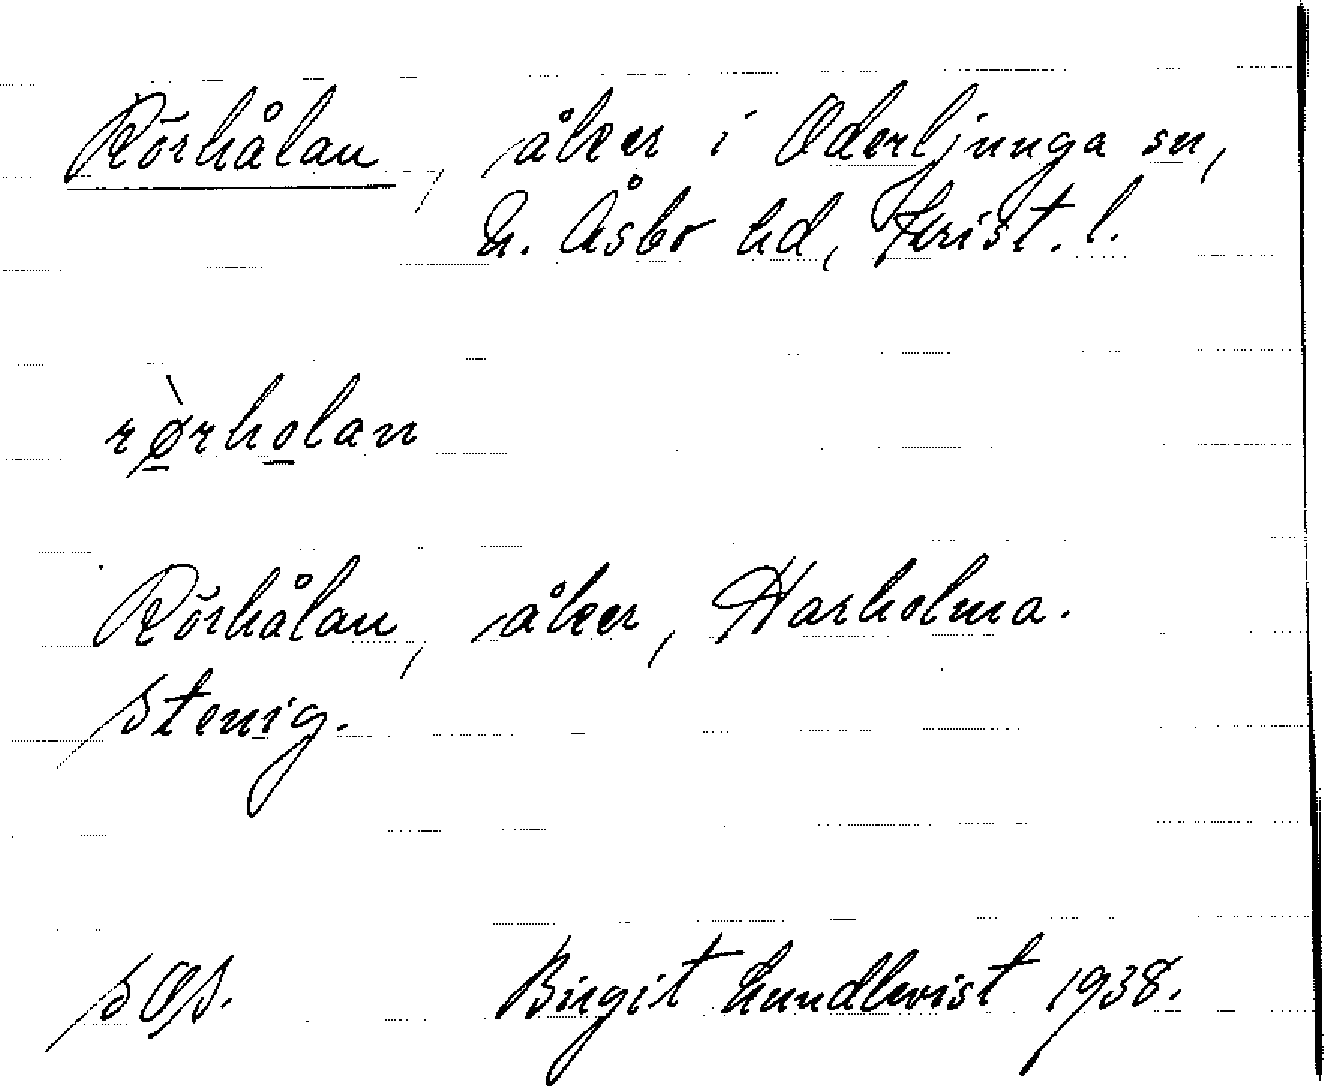 Rörhålan, åker i Oderljunga sn,
N. Åsbo hd, Krist. l.
rø̀rholan
Rörhålan, åker, Harholma.
Stenig.
Birgit Lundkvist 1938.